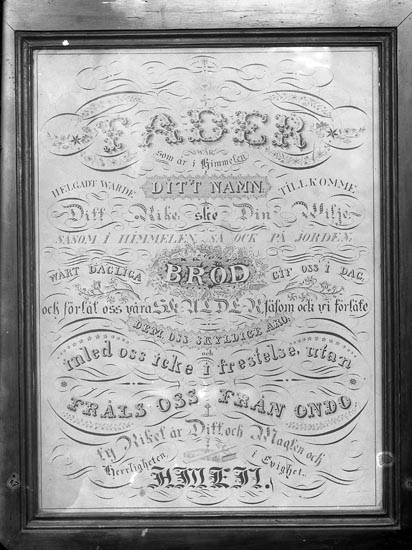 FADER
WÅR
som är i Himmelen
HELGADT WARDE DITT NAMN. TILLKOMME
Ditt Rike, ske Din Wilje
SÅSOM I HIMMELEN, SÅ OCK PÅ JORDEN.
WÅRT DAGLIGA BRÖD GIF OSS I DAG,
och förlåt oss våra SKULDER såsom ock vi förlåte
DEM OSS SKYLDIGE ÄRO,
och
inled oss icke i frestelse, utan
FRÅLS OSS FRÅN ONDO.
Ty Riket är Ditt och Magten och
Herrligheten i Evighet.
AMEN.